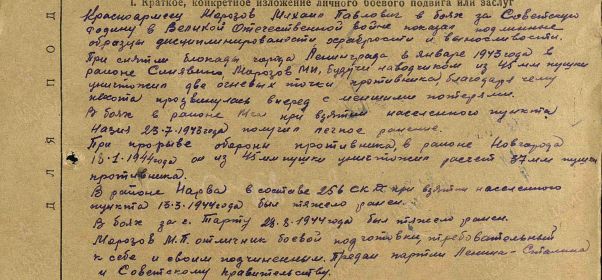 I. Краткое, конкретное изложение личного боевого подвига или заслуг
Красноармеец Марозов Михаил Павлович в боях за Советскую
Родину в Великой Отечественной войне показал подлинные
образцы дисциплинированости, храбрости и выносливости.
При снятии блокады города Ленинграда в январе 1943 года в
районе Синявино, Марозов М.П. будучи наводчиком из 45 мм пушки
уничтожил два огневых точки противника, благодаря чему
пехота продвинулась вперед с меньшими потерями.
В боях в районе при взятии населенного пункта
Назия 23-7-1943 года получил легкое ранение.
При прорыве обороны противника, в районе Новгорода
18-1-1944 года он из 45 мм пушки уничтожил расчет 37 мм пушки
противника.
В районе Нарва в составе 256 СК при взятии населенного
пункта 13-3-1944 года был тяжело ранен.
В боях за г. Тарту 28-8-1944 года был тяжело ранен.
Марозов М.П. отличник боевой подготовки, требовательный
к себе и своим подчиненным. Предан партии Ленина-Сталина
и Советскому Правительству.
ДЛЯ ПОД